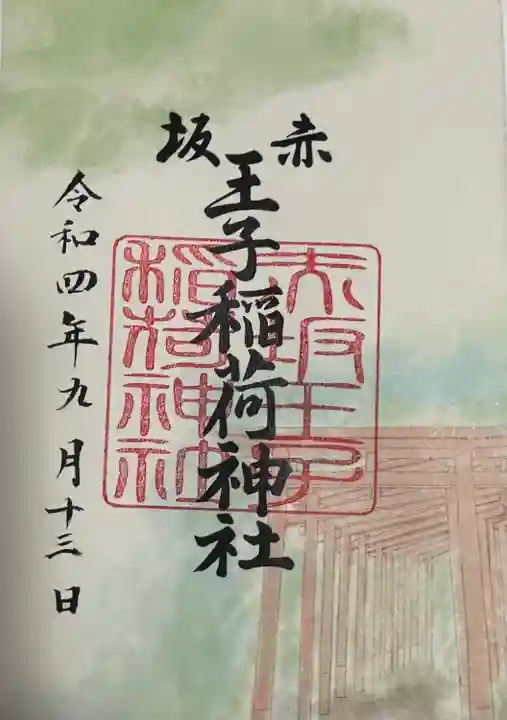 赤坂
王子稲荷神社
令和四年九月十三日
赤坂王子
稲荷神社